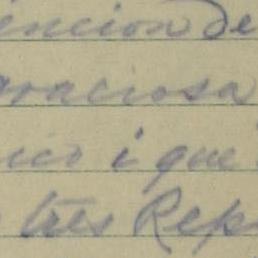 encion de
graciosa
ico i que
tres Rep